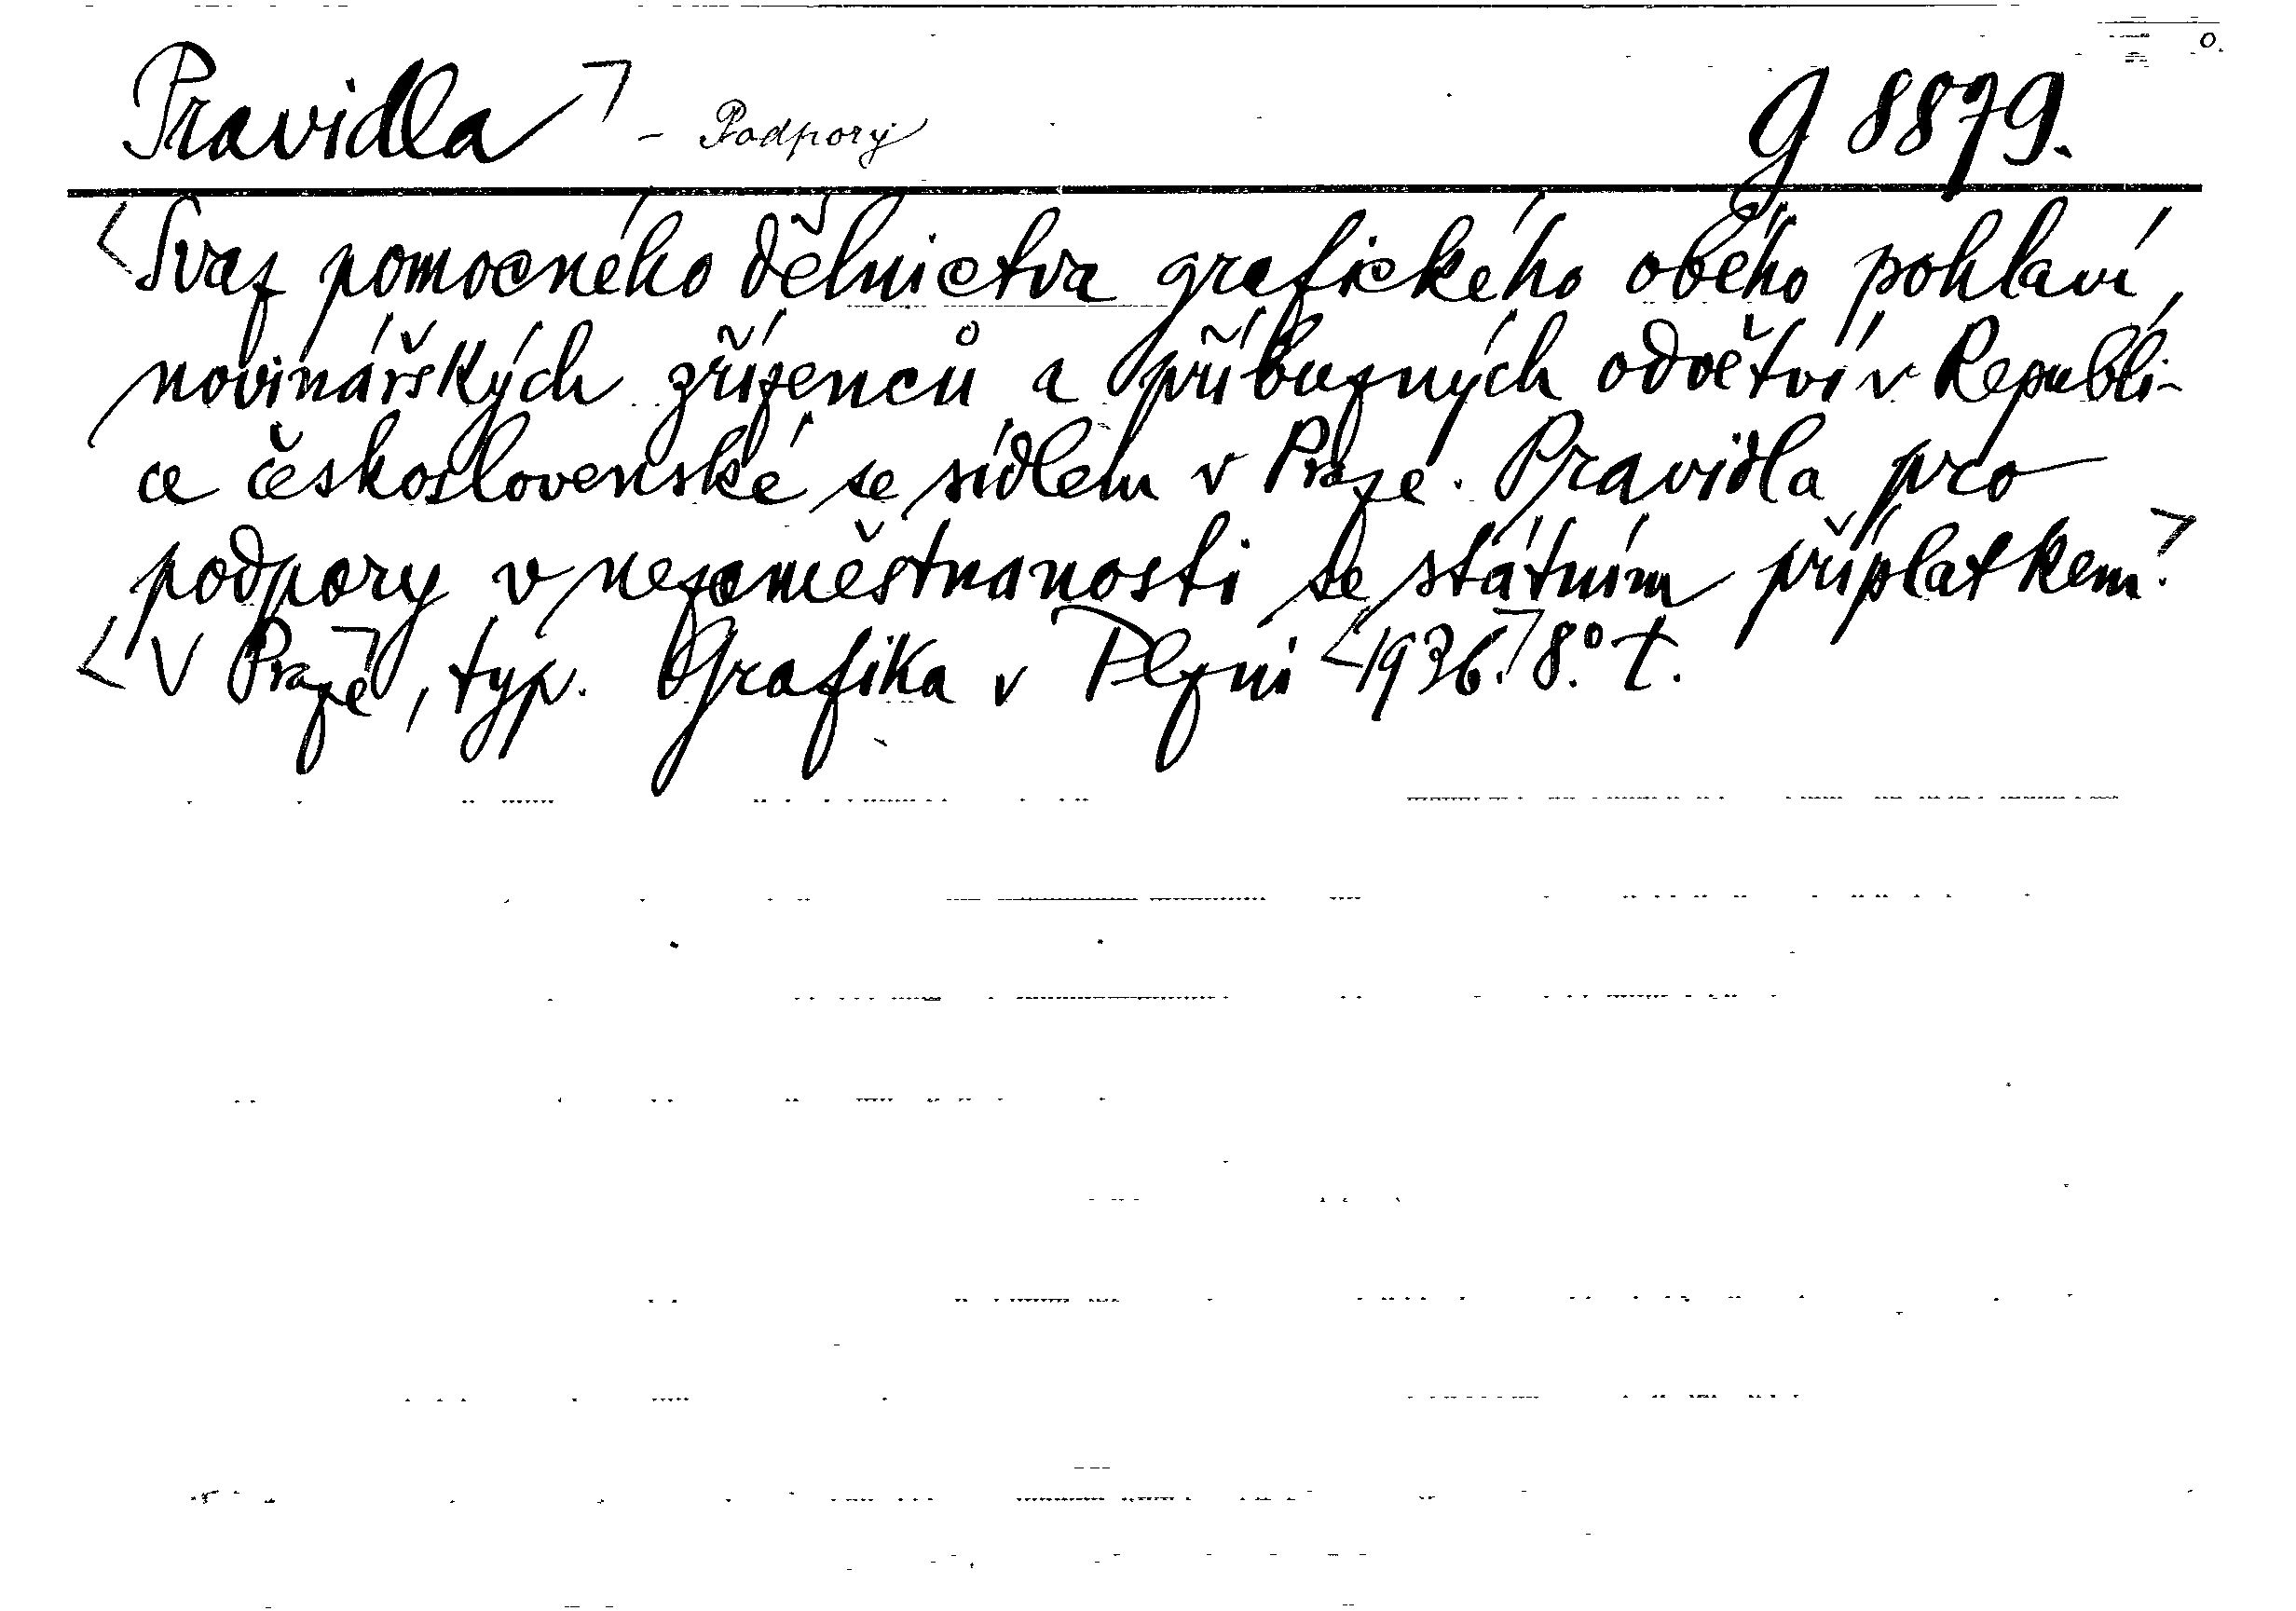 Pravidla ┐ - Podpory g 8879.
<Svaz pomocného dělnictva grafického obého pohlaví,
novinářských zřízenců a příbuzných odvětví v Republi-
ce československé se sídlem v Praze. Pravidla pro
podpory v nezaměstnanosti se státním příplatkem.┐
<V Praze┐, typ. Grafika v Plzni <1936.┐ 8.° t.